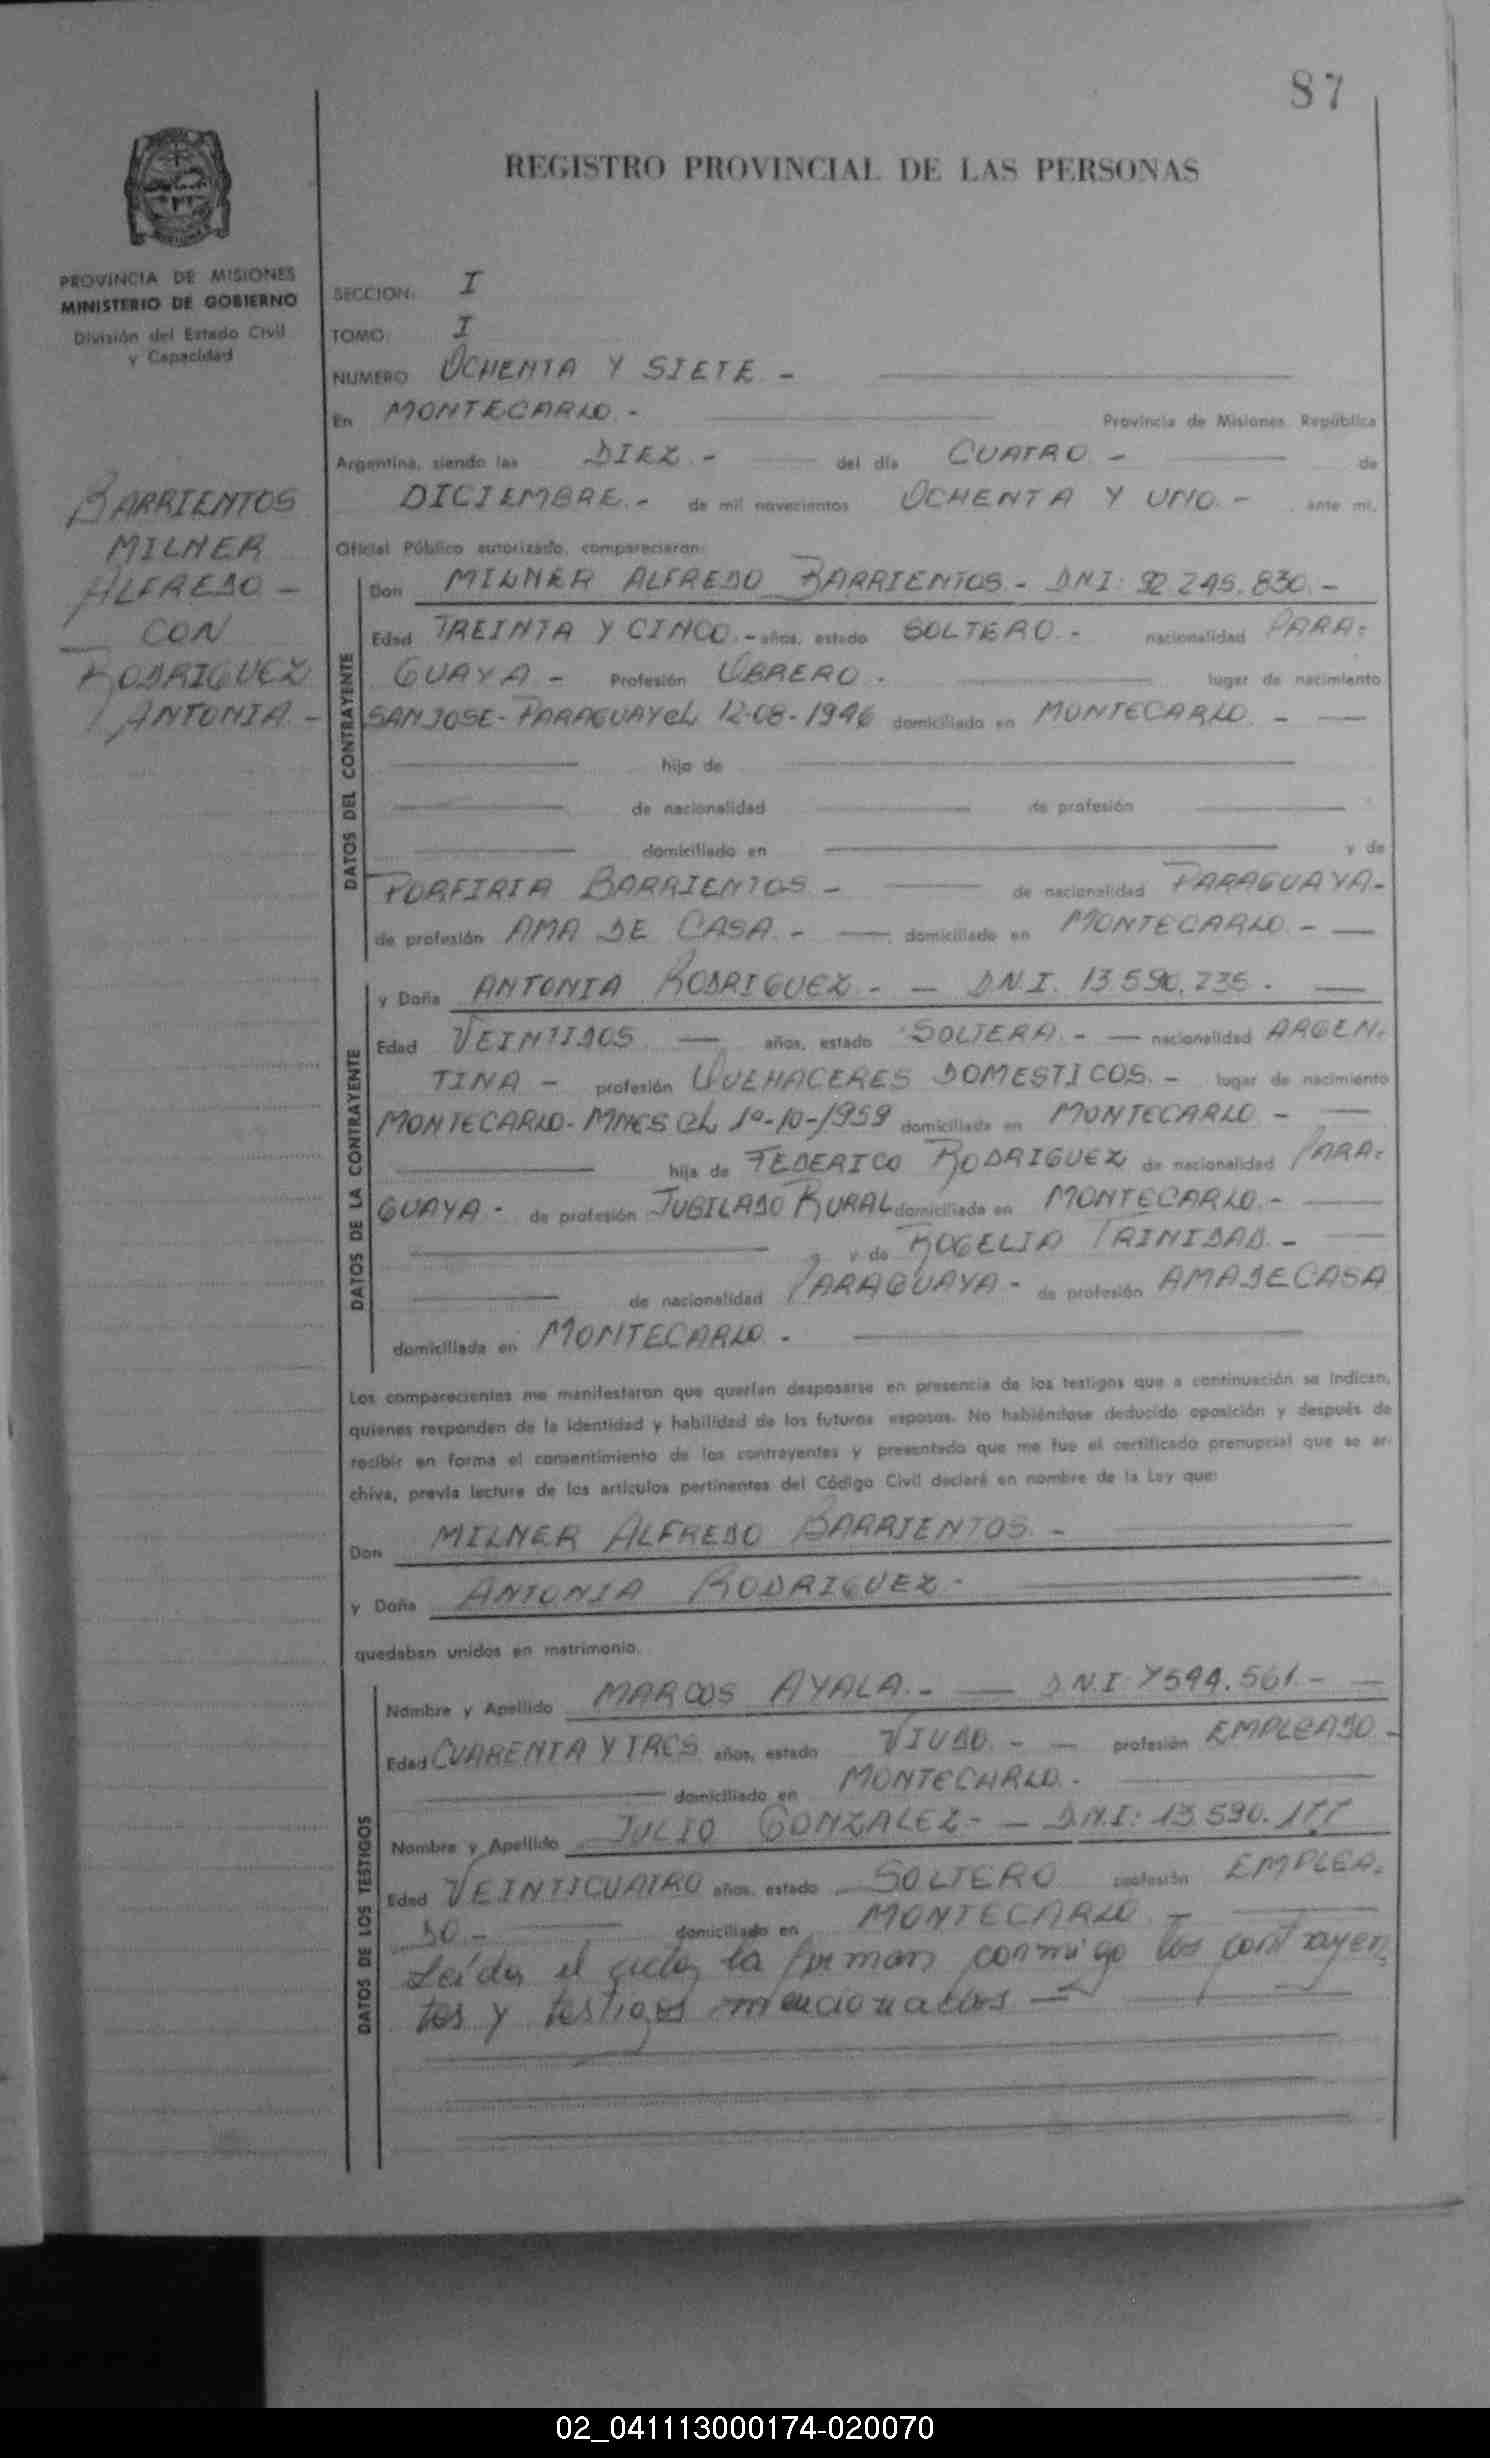 87
REGISTRO PROVINCIAL DE LAS PERSONAS
PROVINCIA DE MISIONES
MINISTERIO DE GOBIERNO
División del Estado Civil
y Capacidad
BARRIENTOS
MILNER
ALFREDO -
CON
RODRIGUEZ
ANTONIA -
SECCION: I
TOMO: I
NUMERO OCHENTA Y SIETE -
En MONTECARLO - Provincia de Misiones República
Argentina, siendo las DIEZ - del día CUATRO - de
DICIEMBRE - de mil novecientos OCHENTA Y UNO - ante mí,
Oficial Público autorizado, comparecieron:
DATOS DEL CONTRAYENTE
Don MILNER ALFREDO BARRIENTOS - DNI: 92 245.830 -
Edad TREINTA Y CINCO - años, estado SOLTERO - nacionalidad PARA-
GUAYA - Profesión OBRERO - lugar de nacimiento
SAN JOSE - PARAGUAY el 12-08-1946 domiciliado en MONTECARLO -
hijo de
de nacionalidad de profesión
domiciliado en y de
PORFIRIA BARRIENTOS - de nacionalidad PARAGUAYA -
de profesión AMA DE CASA - domiciliado en MONTECARLO -
DATOS DE LA CONTRAYENTE
y Doña ANTONIA RODRIGUEZ - - D.N.I. 13.590.235 -
Edad VEINTIDOS años, estado SOLTERA - nacionalidad ARGEN-
TINA - profesión QUEHACERES DOMESTICOS - lugar de nacimiento
MONTECARLO - MNES el 1º-10-1959 domiciliada en MONTECARLO -
hija de FEDERICO RODRIGUEZ de nacionalidad PARA-
GUAYA - de profesión JUBILADO RURAL domiciliado en MONTECARLO -
y de ROGELIA TRINIDAD -
de nacionalidad PARAGUAYA - de profesión AMA DE CASA
domiciliada en MONTECARLO -
Los comparecientes me manifestaron que querían desposarse en presencia de los testigos que a continuación se indican,
quienes responden de la identidad y habilidad de los futuros esposos. No habiéndose deducido oposición y después de
recibir en forma el consentimiento de los contrayentes y presentado que me fue el certificado prenupcial que se ar-
chiva, previa lectura de los artículos pertinentes del Código Civil declaré en nombre de la Ley que:
Don MILNER ALFREDO BARRIENTOS -
y Doña ANTONIA RODRIGUEZ -
quedaban unidos en matrimonio.
DATOS DE LOS TESTIGOS
Nombre y Apellido MARCOS AYALA - D.N.I 7594.561 -
Edad CUARENTA Y TRES años, estado VIUDO - profesión EMPLEADO -
domiciliado en MONTECARLO -
Nombre y Apellido JULIO GONZALEZ - D.N.I: 13.590.177
Edad VEINTICUATRO años, estado SOLTERO profesión EMPLEA-
DO - domiciliado en MONTECARLO -
Leída el acta, la firman conmigo los contrayen-
tes y testigos mencionados -
02_041113000174-020070